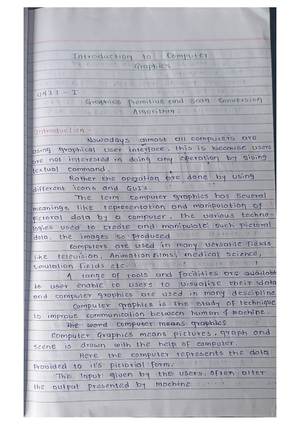 Introduction to Computer
Graphics
UNIT - I
Graphics primitive and Scan Conversion
Algorithm.
Introduction -
Nowadays almost all computers are
using graphical user interface, this is because users
are not interested in doing any operation by giving
textual command.
Rather the operation are done by using
different icons and GUI's.
The term computer graphics has several
meanings, like representation and manipulation of
pictorial data by a computer, the various techno-
logies used to create and manipulate such pictorial
data, the images so produced.
Computers are used in many versatile fields
like television, Animation films, medical science,
simulation fields etc.
A range of tools and facilities are available
to user enable to users to visualize their data
and computer graphics are used in many discipline
Computer graphics is the study of technique
to improve communication between human & machine.
The word computer means graphics
Computer Graphics means pictures, graph and
scene is drawn with the help of computer.
Here the computer represents the data
provided to it's pictorial form.
The input given by the users, often alter
the output presented by machine